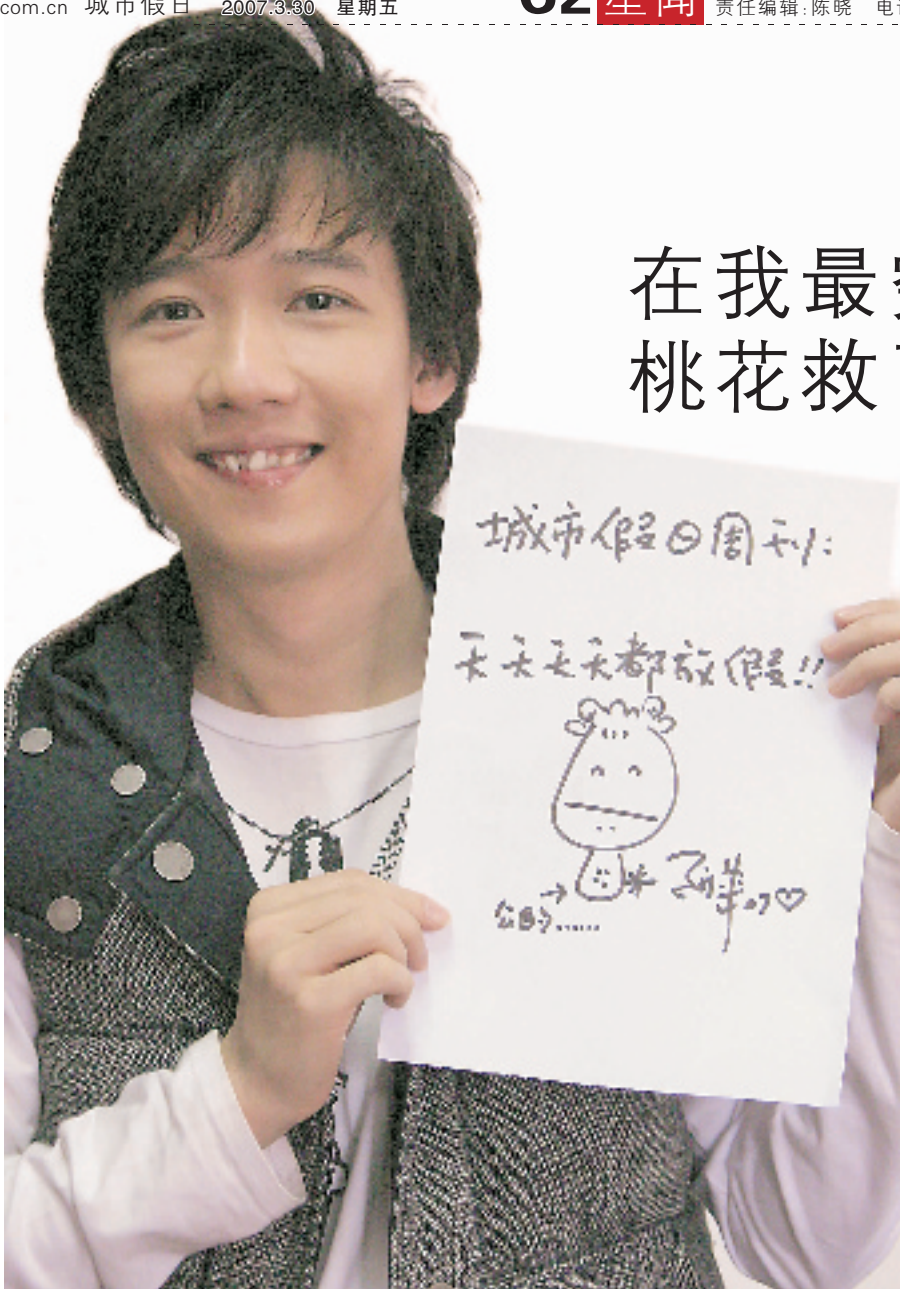 com.cn 城市假日 2007.3.30 星期五 62 星闻 责任编辑:陈晓 电
在我最
桃花救
城市假日周刊:
天天天天都放假!!
公的......